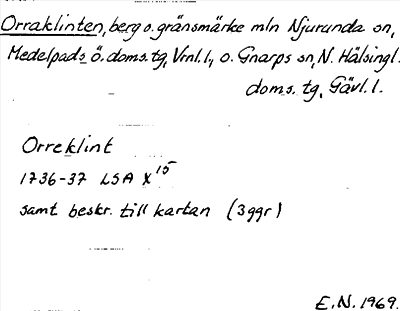 Orraklinten, berg o. gränsmärke mln Njurunda sn,
Medelpads ö. doms. tg, Vrnl. l., o. Gnarps sn, N. Hälsingl.
doms. tg, Gävl. l.
Orreklint
1736-37 LSA X¹⁵
samt beskr. till kartan (3 ggr)
E.N. 1969.